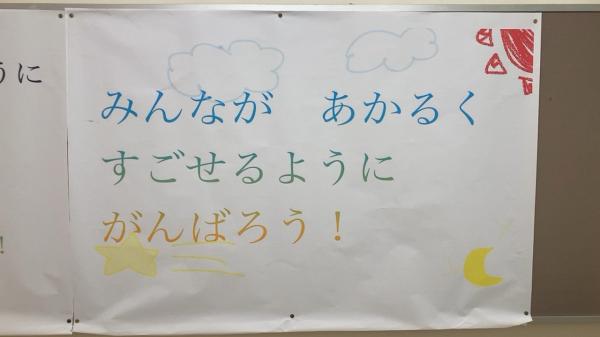 うに
みんなが　あかるく
すごせるように
がんばろう！
！